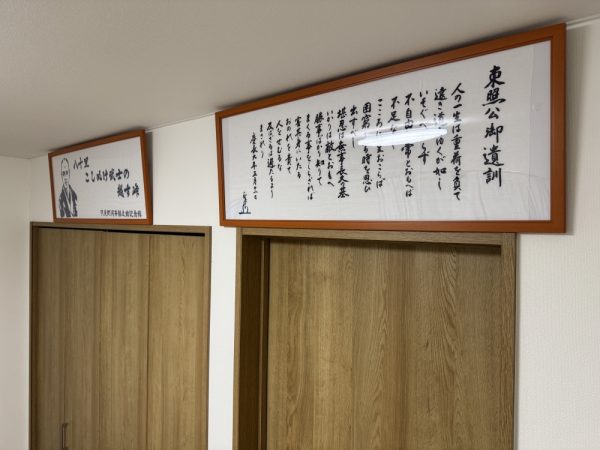 東照公御遺訓
人の一生は重荷を負て
遠き道をゆくが如し
いそぐべからず
不自由を常とおもへば
不足なし
こころに望おこらば
困窮したる時を思ひ
出すべし
堪忍は無事長久の基
いかりは敵とおもへ
勝事ばかり知りて
まくる事をしらざれば
害其身にいたる
おのれを責て
人をせむるな
及ばざるは過たるより
まされり
八十里
こしぬけ武士の
越す峠
只見町河井継之助記念館